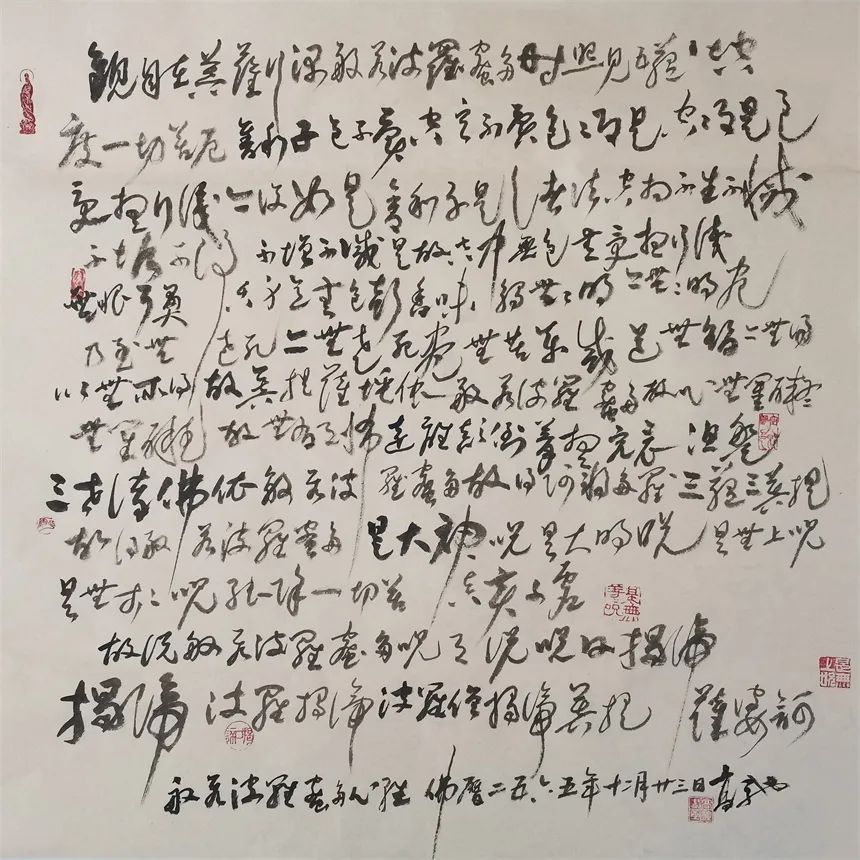 觀自在菩薩行深般若波羅蜜多時照見五蘊皆空
度一切苦厄舍利子色不異空空不異色色即是空空即是色
受想行識亦復如是舍利子是諸法空相不生不滅
不垢不淨不增不減是故空中無色無受想行識
無眼耳鼻舌身意無色聲香味觸無無明亦無無明盡
乃至無老死亦無老死盡無苦集滅道無智亦無得
以無所得故菩提薩埵依般若波羅蜜多故心無罣礙
無罣礙故無有恐怖遠離顛倒夢想究竟涅槃
三世諸佛依般若波羅蜜多故得阿耨多羅三藐三菩提
故知般若波羅蜜多是大神咒是大明咒是無上咒
是無等等咒能除一切苦真實不虛
故說般若波羅蜜多咒即說咒曰揭諦
揭諦波羅揭諦波羅僧揭諦菩提薩婆訶
般若波羅蜜多心經佛曆二五六五年十二月廿三日